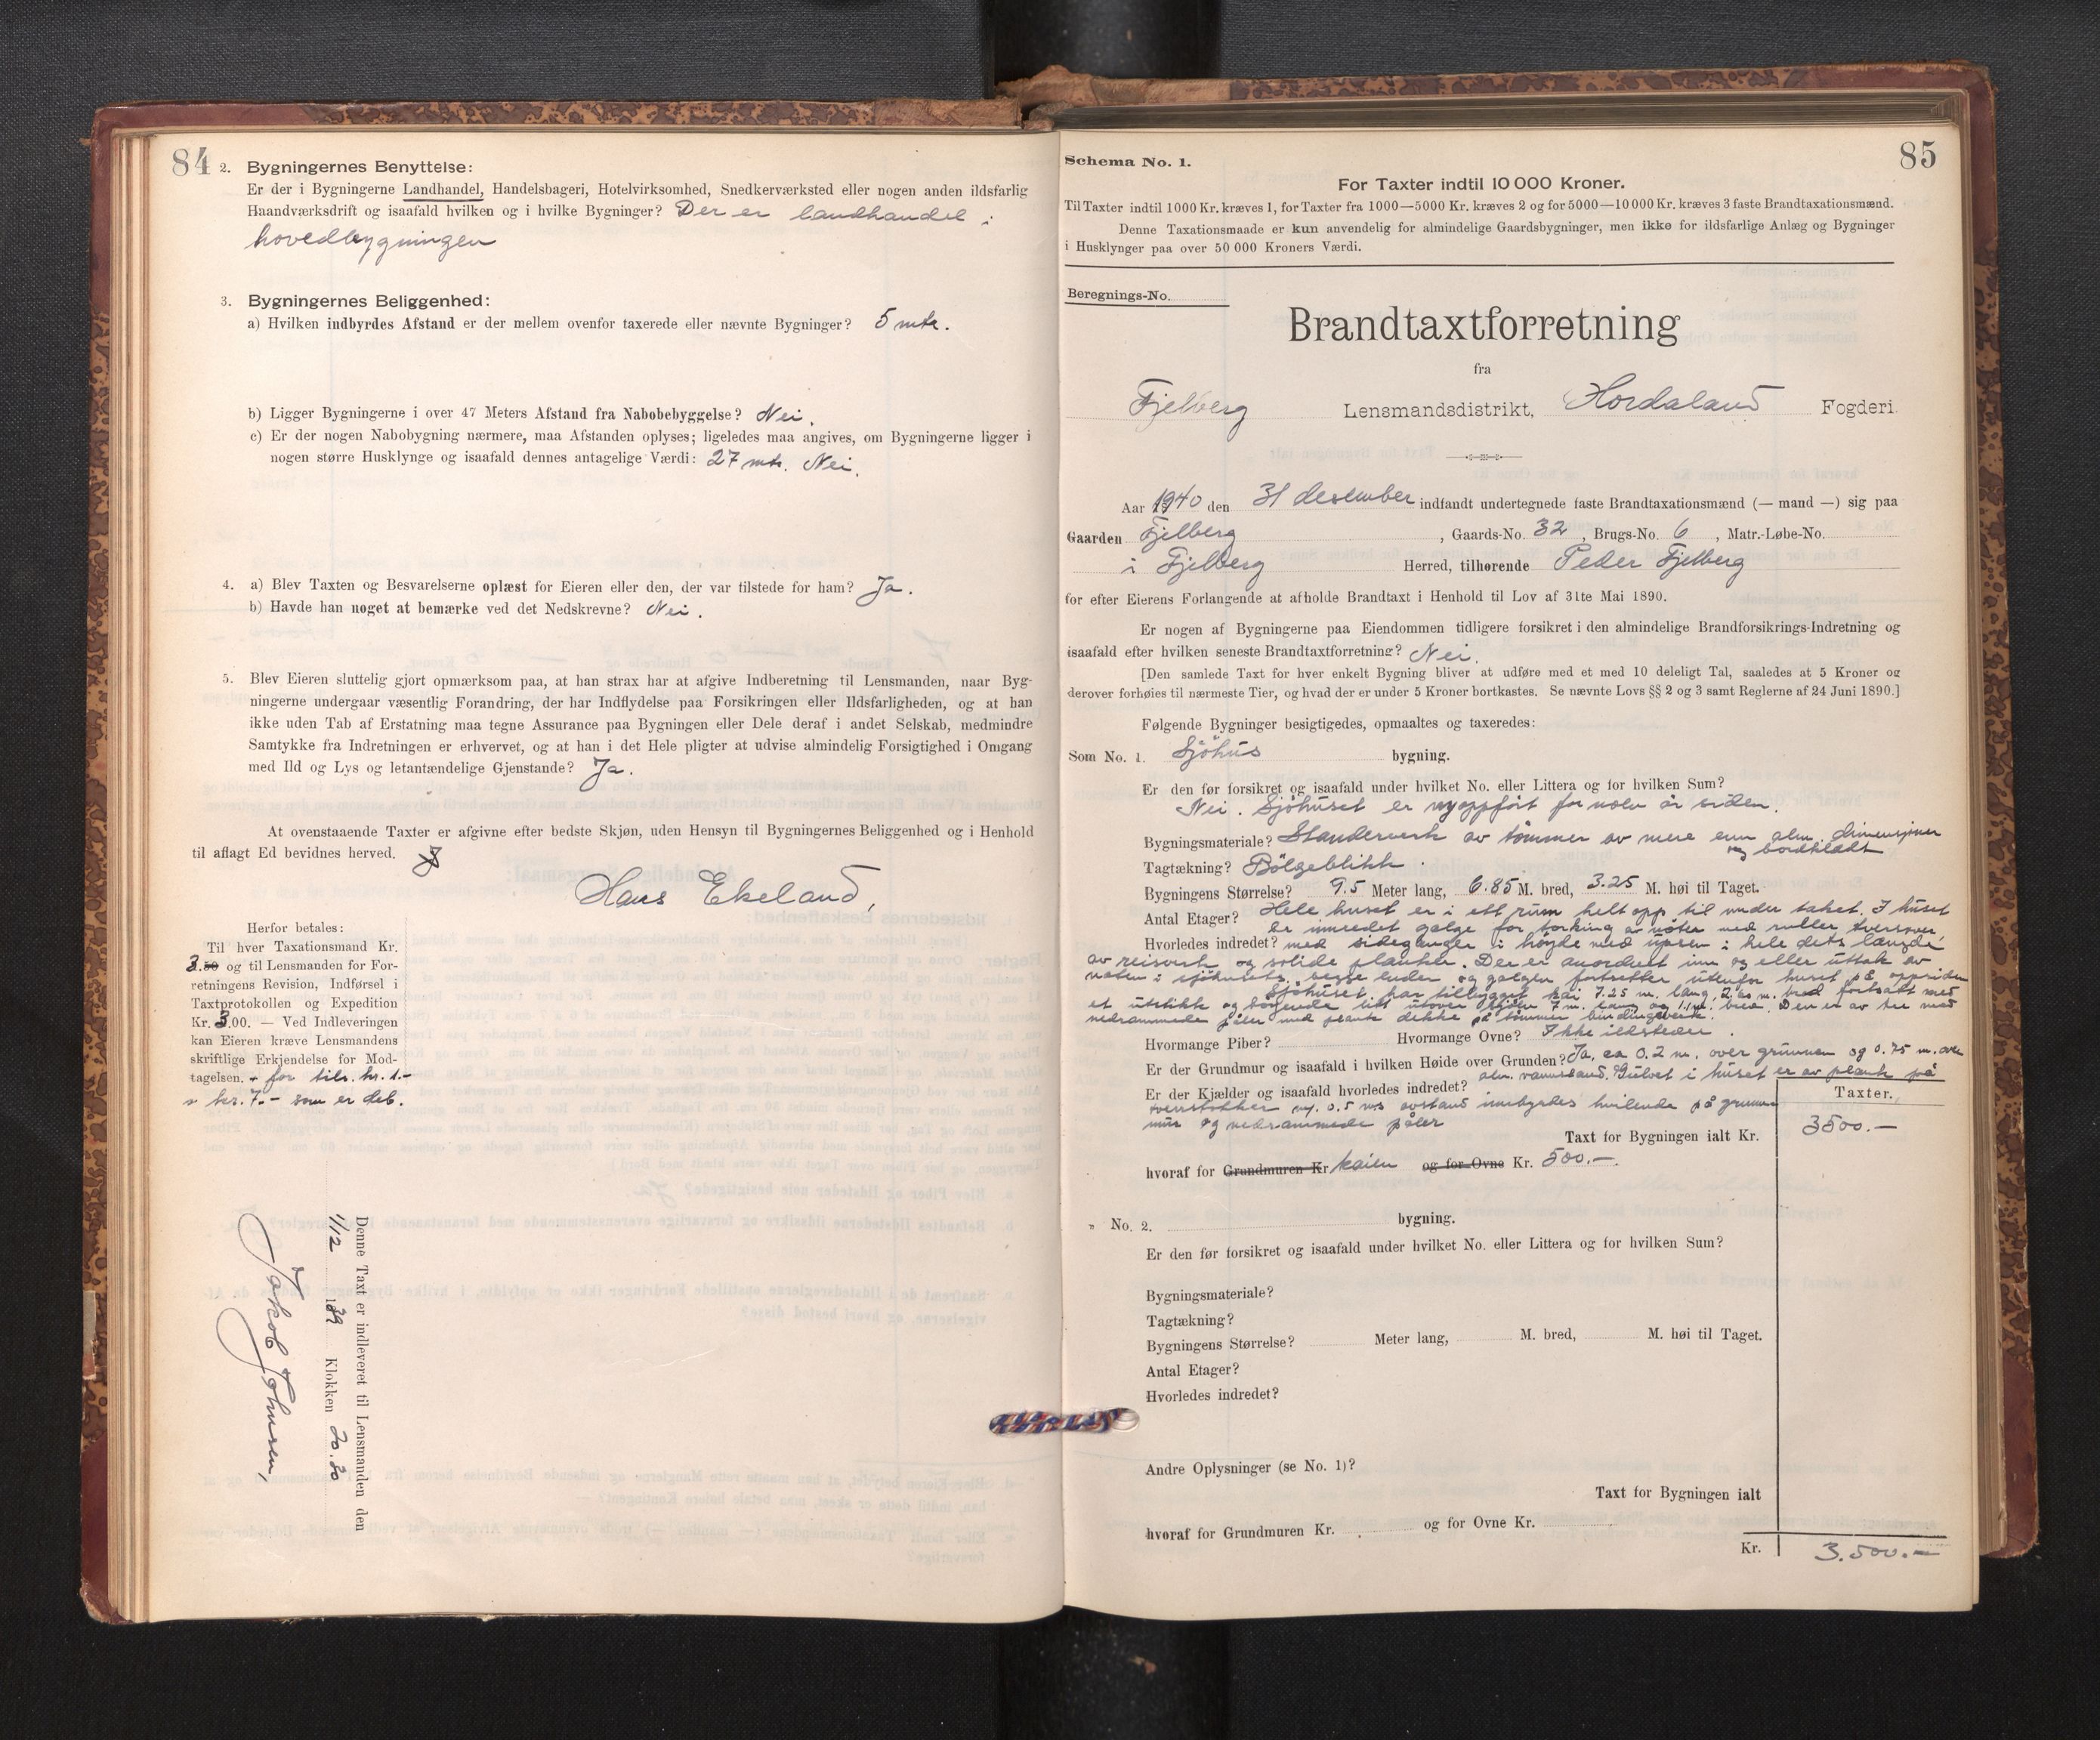 84
2. Bygningernes Benyttelse:
Er der i Bygningerne Landhandel, Handelsbageri, Hotelvirksomhed, Snedkerværksted eller nogen anden ildsfarlig
Haandværksdrift og isaafald hvilken og i hvilke Bygninger? Der er landhandel i
hovedbygningen
3. Bygningernes Beliggenhed:
a) Hvilken indbyrdes Afstand er der mellem ovenfor taxerede eller nævnte Bygninger? 5 mtr.
b) Ligger Bygningerne i over 47 Meters Afstand fra Nabobebyggelse? Nei.
c) Er der nogen Nabobygning nærmere, maa Afstanden oplyses; ligeledes maa angives, om Bygningerne ligger i
nogen større Husklynge og isaafald dennes antagelige Værdi: 27 mtr. Nei.
4. a) Blev Taxten og Besvarelserne oplæst for Eieren eller den, der var tilstede for ham? Ja.
b) Havde han noget at bemærke ved det Nedskrevne? Nei.
5. Blev Eieren sluttelig gjort opmærksom paa, at han strax har at afgive Indberetning til Lensmanden, naar Byg-
ningerne undergaar væsentlig Forandring, der har Indflydelse paa Forsikringen eller Ildsfarligheden, og at han
ikke uden Tab af Erstatning maa tegne Assurance paa Bygningen eller Dele deraf i andet Selskab, medmindre
Samtykke fra Indretningen er erhvervet, og at han i det Hele pligter at udvise almindelig Forsigtighed i Omgang
med Ild og Lys og letantændelige Gjenstande? Ja.
At ovenstaaende Taxter er afgivne efter bedste Skjøn, uden Hensyn til Bygningernes Beliggenhed og i Henhold
til aflagt Ed bevidnes herved.
Hans Ekeland,
Herfor betales:
Til hver Taxationsmand Kr.
3.50 og til Lensmanden for For-
retningens Revision, Indførsel i
Taxtprotokollen og Expedition
Kr. 3.00. — Ved Indleveringen
kan Eieren kræve Lensmandens
skriftlige Erkjendelse for Mod-
tagelsen. + for tils. kr. 1.-
= kr. 7.- som er deb.
Denne Taxt er indleveret til Lensmanden den
1/12 1939 Klokken 20.30
Jakob Johnsen,
85
Schema No. 1.
For Taxter indtil 10 000 Kroner.
Til Taxter indtil 1000 Kr. kræves 1, for Taxter fra 1000—5000 Kr. kræves 2 og for 5000—10 000 Kr. kræves 3 faste Brandtaxationsmænd.
Denne Taxationsmaade er kun anvendelig for almindelige Gaardsbygninger, men ikke for ildsfarlige Anlæg og Bygninger
i Husklynger paa over 50 000 Kroners Værdi.
Beregnings-No.
Brandtaxtforretning
fra
Fjelberg Lensmandsdistrikt, Hordaland Fogderi.
Aar 1940 den 31 desember indfandt undertegnede faste Brandtaxationsmænd (— mand —) sig paa
Gaarden Fjelberg, Gaards-No. 32, Brugs-No. 6, Matr.-Løbe-No.
i Fjelberg Herred, tilhørende Peder Fjelberg
for efter Eierens Forlangende at afholde Brandtaxt i Henhold til Lov af 31te Mai 1890.
Er nogen af Bygningerne paa Eiendommen tidligere forsikret i den almindelige Brandforsikrings-Indretning og
isaafald efter hvilken seneste Brandtaxtforretning? Nei.
[Den samlede Taxt for hver enkelt Bygning bliver at udføre med et med 10 deleligt Tal, saaledes at 5 Kroner og
derover forhøies til nærmeste Tier, og hvad der er under 5 Kroner bortkastes. Se nævnte Lovs §§ 2 og 3 samt Reglerne af 24 Juni 1890.]
Følgende Bygninger besigtigedes, opmaaltes og taxeredes:
Som No. 1. Sjöhus bygning.
Er den før forsikret og isaafald under hvilket No. eller Littera og for hvilken Sum?
Nei. Sjöhuset er nyoppfört for noen år siden.
Bygningsmateriale? Standerverk av tömmer av mere enn alm. dimensjoner
og bordklædt
Tagtækning? Bölgeblikk.
Bygningens Størrelse? 9.5 Meter lang, 6.85 M. bred, 3.25 M. høi til Taget.
Antal Etager? Hele huset er i ett rum helt opp til under taket. I huset
er innredet galge for torking av nöter med ruller tversover,
Hvorledes indredet? med sideganger i höyde med upsen i hele dets længde
av reisverk og solide planker. Der er anordnet inn og eller uttak av
noten i sjöhusets begge ender og galgen fortsetter utenfor huset på oppsiden
Sjöhuset har tilbygget kai 7.25 m. lang, 2.20 m. bred fortsatt med
et utstikk og böyende litt utover sjöen 7 m. lang og 1.1 m. bred. Den er av tre med
nedrammede påler med planke dekke på tömmer bindingsverk.
Hvormange Piber? Hvormange Ovne? Ikke ildsteder.
Er der Grundmur og isaafald i hvilken Høide over Grunden? Ja, ca 0.2 m. over grunnen og 0.75 m. over
alm. vannstand. Gulvet i huset er av plank på
Er der Kjælder og isaafald hvorledes indredet?
tverrstokker m/. 0.5 ms avstand innbyrdes hvilende på grunn
mur og nedrammede påler
Taxter.
Taxt for Bygningen ialt Kr. 3500.-
hvoraf for Grundmuren Kr kaien og for Ovne Kr. 500.-.
" No. 2. bygning.
Er den før forsikret og isaafald under hvilket No. eller Littera og for hvilken Sum?
Bygningsmateriale?
Tagtækning?
Bygningens Størrelse? Meter lang, M. bred, M. høi til Taget.
Antal Etager?
Hvorledes indredet?
Andre Oplysninger (se No. 1)?
Taxt for Bygningen ialt
hvoraf for Grundmuren Kr. og for Ovne Kr.
Kr. 3.500.-